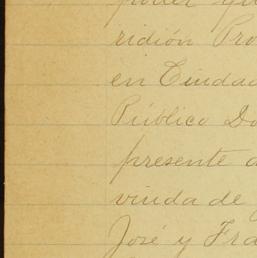 poder que
ridión Pro
en Ciudad
Público Do
presente a
viuda de
José y Fra